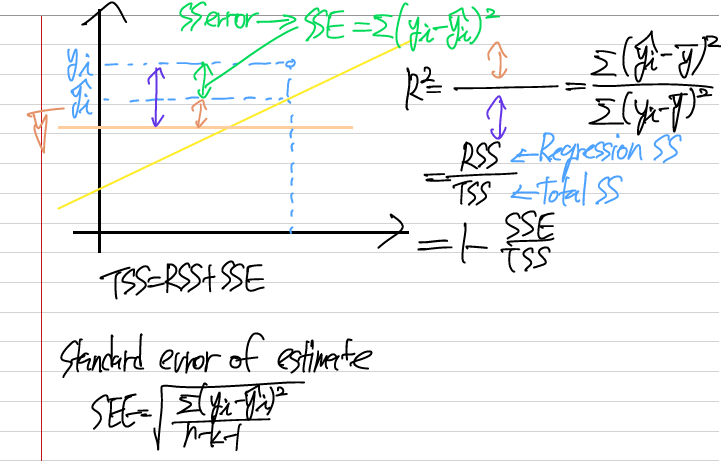 SS error → SSE = Σ(yi - ŷi)²
yi
ŷi
ȳ
R² = ↕/↕ = Σ(ŷi - ȳ)² / Σ(yi - ȳ)²
= RSS / TSS ← Regression SS ← Total SS
= 1 - SSE / TSS
TSS = RSS + SSE
Standard error of estimate
SEE = √(Σ(yi - ŷi)² / n-k-1)